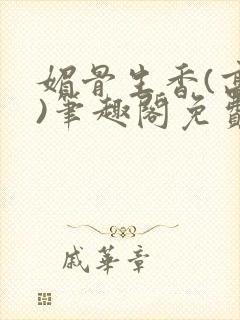 媚骨生香(高
)笔趣阁免费
戚華章